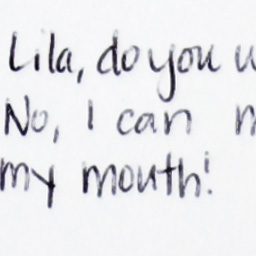 Lila, do you
No, I can
my mouth!